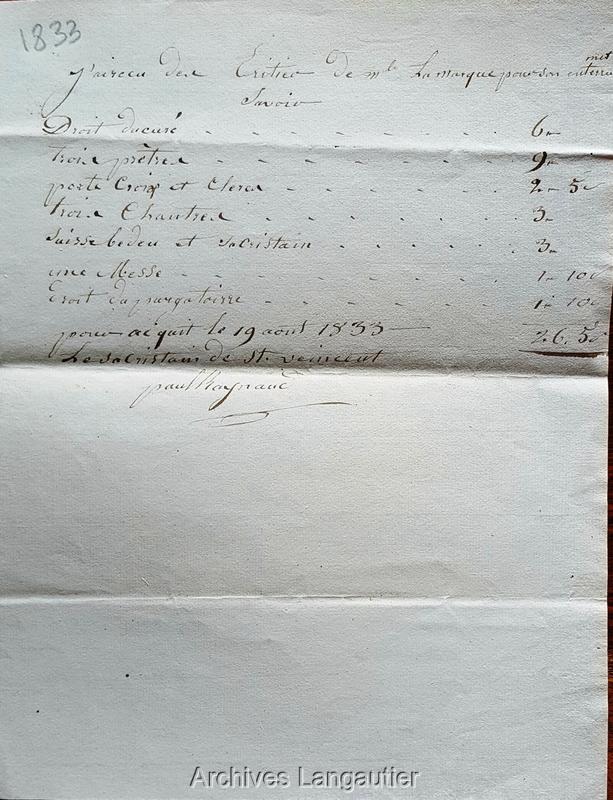 1833
j'aireçu des Eritiés De mlle Lamarque pour son enterrmet
Savoir
Droit ducuré - - - - - - - 6"
trois prêtres - - - - - - - 9"
porte Croix et Clercs - - - - - - 2" 5c
trois Chantres - - - - - - 3"
Suisse bedeu et Sacristain - - - - - 3"
une Messe - - - - - - - 1" 10c
Droit du purgatoirre - - - - - - 1" 10c
pour aiquit le 19 aout 1833 — 26. 5c
Le Sacristain de St. veincent
paul Raynaud
Archives Langautier